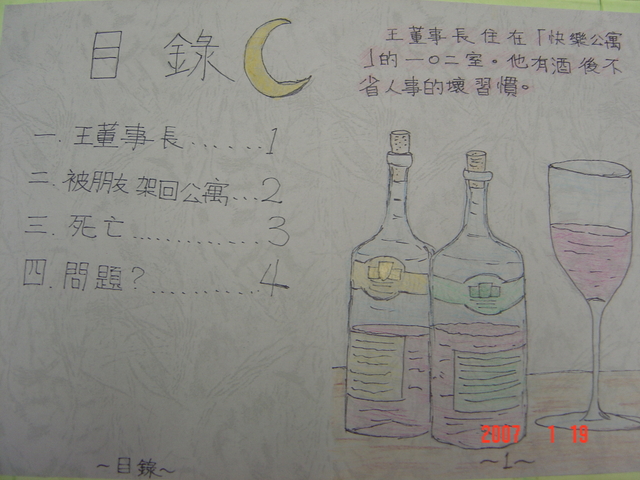 目錄
一.王董事長......1
二.被朋友架回公寓...2
三.死亡............3
四.問題？..........4
～目錄～
王董事長住在「快樂公寓
」的一〇二室。他有酒後不
省人事的壞習慣。
～1～
2007 1 19